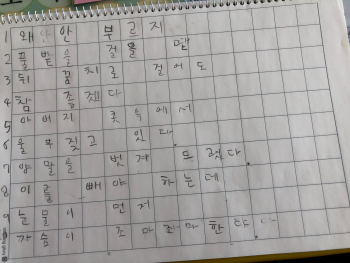 1 왜 안 안 부르지
2 풀밭을 걸을 땐
3 뒤꿈치로 걸어도
4 참 좋겠다
5 아버지 롯속에서
6 울부짖고 있다.
7 양말을 벗겨 드렸다.
8 이를 빼야 하는데
9 눈물이 먼저
가슴이 조마조마한다.